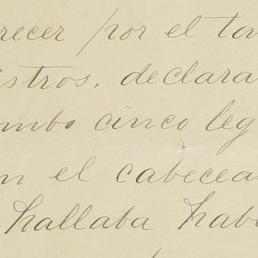 recer por el ton
istros, declara
umbo cinco leg
n el cabecea
hallaba hab